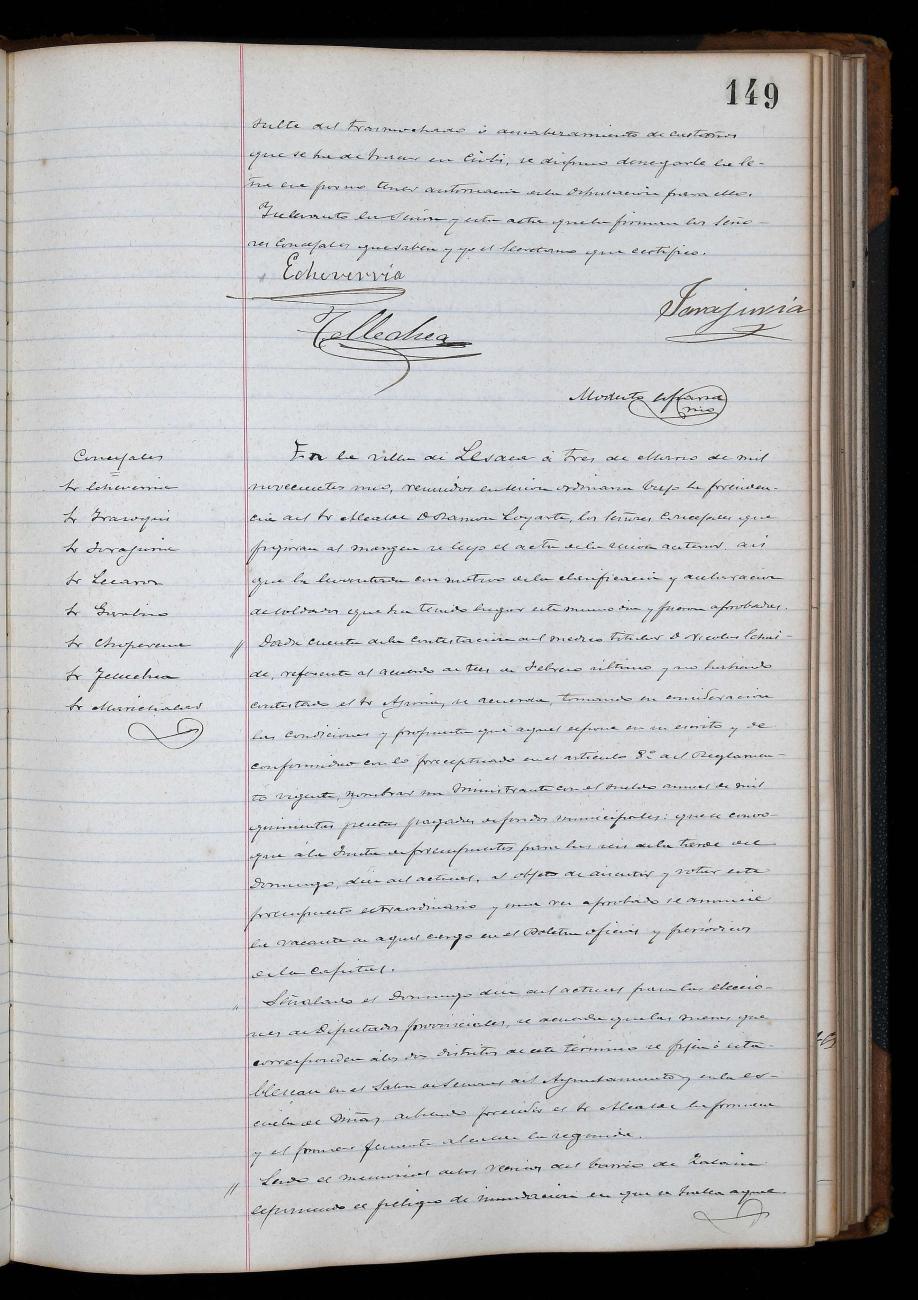 149
sulte del trasmochado ó descabezamiento de castaños
que se ha de hacer en Endi, se dispuso denegarle la le-
por no tener autorización de la Diputación para ello.
Se levantó la sesión y esta acta que la firman los Seño-
res Concejales que saben y yo el Secretario que certifico.
Echeverria
Tellechea
Iarajuria
Modesto
Concejales
Sr Echeverria
Sr Irazoqui
Sr Iarajuria
Sr Lecaroz
Sr
Sr Choperena
Sr Tellechea
Sr Marichalar
En la villa de Lesaca á tres de Marzo de mil
novecientos uno, reunidos en sesión ordinaria bajo la presiden-
cia del Sr Alcalde D. Ramon Loyarte, los Señores Concejales que
figuran al margen se leyó el acta de la sesion anterior, asi
que la levantada con motivo de la clasificación y declaracion
de soldados que ha tenido lugar este mismo dia y fueron aprobadas.
" Dada cuenta de la contestación del médico titular D. Nicolas
de, referente al acuerdo de tres de Febrero último y no habiendo
contestado el Sr se acuerda, tomando en consideración
las condiciones y propuesta que aquel expone en su escrito y de
conformidad con lo preceptuado en el artículo 8º del Reglamen-
to vigente, nombrar un Ministrante con el sueldo anual de mil
quinientas pesetas pagadas de fondos municipales: que se convo-
que á la Junta de presupuestos para las seis de la tarde del
Domingo, diez del actual, al objeto de discutir y votar este
presupuesto extraordinario y una vez aprobado se anuncie
la vacante de aquel cargo en el Boletin oficial y periódicos
de la Capital.
" Señalado el Domingo diez del actual para las eleccio-
nes de Diputados provinciales, se acuerda que las mesas que
corresponden á los dos distritos de este término se fijen ó esta-
blezcan en el Salon de Sesiones del Ayuntamiento y en la es-
cuela de Niñas, debiendo presidir el Sr Alcalde la primera
y el primer Teniente alcalde la segunda.
" Leido el memorial de los vecinos del barrio de Zalain
exponiendo el peligro de inundación en que se halla aquel